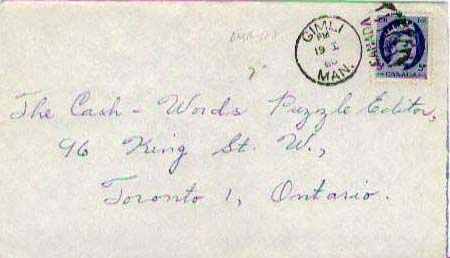 GIMLI
PM
19 I
MAN.
CANADA
CANADA
The Cash - Words Puzzle Editor,
96 King St. W.,
Toronto 1, Ontario.